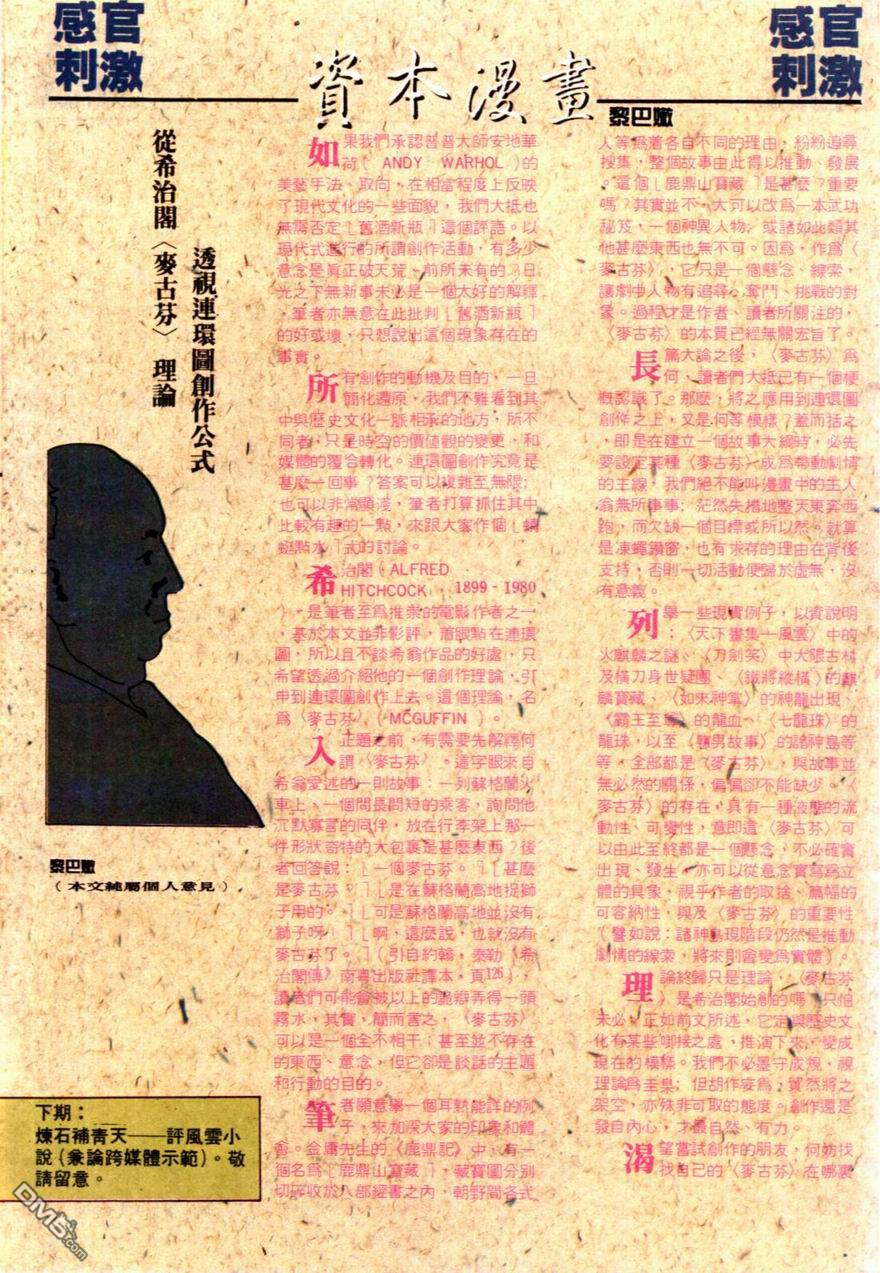 感官
刺激
資本漫畫
感官
刺激
黎巴嫩
從希治閣〈麥古芬〉理論
透視連環圖創作公式
如果我們承認普普大師安地華
荷(ANDY WARHOL)的
美藝手法、取向，在相當程度上反映
了現代文化的一些面貌，我們大抵也
無需否定「舊酒新瓶」這個評語。以
現代式進行的所謂創作活動，有多少
意念是真正破天荒、前所未有的？日
光之下無新事未必是一個太好的解釋
，筆者亦無意在此批判「舊酒新瓶」
的好或壞，只想說出這個現象存在的
事實。
所有創作的動機及目的，一旦
簡化還原，我們不難看到其
中與歷史文化一脈相承的地方，所不
同者，只是時空的價值觀的變更，和
媒體的覆合轉化。連環圖創作究竟是
甚麼一回事？答案可以複雜至無限；
也可以非常顯淺，筆者打算抓住其中
比較有趣的一點，來跟大家作個「蜻
蜓點水」式的討論。
希治閣(ALFRED
HITCHCOCK 1899-1980
)，是筆者至為推崇的電影作者之一
，基於本文並非影評，着眼點在連環
圖，所以且不談希翁作品的好處，只
希望透過介紹他的一個創作理論，引
申到連環圖創作上去。這個理論，名
為〈麥古芬〉(MCGUFFIN)。
入正題之前，有需要先解釋何
謂〈麥古芬〉。這字眼來自
希翁愛述的一則故事：一列蘇格蘭火
車上，一個問長問短的乘客，詢問他
沉默寡言的同伴，放在行李架上那一
件形狀奇特的大包裹是甚麼東西？後
者回答說：「一個麥古芬。」「甚麼
是麥古芬？」「是在蘇格蘭高地捉獅
子用的。」「可是蘇格蘭高地並沒有
獅子呀！」「啊，這麼說，也就沒有
麥古芬了。」(引自約翰．泰勒《希
治閣傳》南粵出版社譯本，頁126)，
讀者們可能會被以上的詭辯弄得一頭
霧水，其實，簡而言之，〈麥古芬〉
可以是一個全不相干；甚至並不存在
的東西、意念，但它卻是談話的主題
和行動的目的。
筆者願意舉一個耳熟能詳的例
子，來加深大家的印象和體
會。金庸先生的《鹿鼎記》中，有一
個名為「鹿鼎山寶藏」，藏寶圖分別
切碎收於八部經書之內，朝野間各式
人等為着各自不同的理由，紛紛追尋
搜集，整個故事由此得以推動、發展
。這個「鹿鼎山寶藏」是甚麼？重要
嗎？其實並不，大可以改為一本武功
秘笈，一個神異人物；或諸如此類其
他甚麼東西也無不可。因為，作為〈
麥古芬〉，它只是一個懸念、線索，
讓劇中人物有追尋、奪鬥、挑戰的對
象。過程才是作者、讀者所關注的，
〈麥古芬〉的本質已經無關宏旨了。
長篇大論之後，〈麥古芬〉為
何，讀者們大抵已有一個梗
概認識了。那麼，將之應用到連環圖
創作之上，又是何等模樣？蓋而括之
，即是在建立一個故事大綱時，必先
要設定某種〈麥古芬〉成為帶動劇情
的主線，我們絕不能叫漫畫中的主人
翁無所事事；茫然失措地整天東奔西
跑，而欠缺一個目標或所以然。就算
是凍蠅鑽窗，也有求存的理由在背後
支持，否則一切活動便歸於虛無，沒
有意義。
列舉一些現實例子，以資說明
：〈天下畫集—風雲〉中的
火麒麟之謎、〈刀劍笑〉中大限古村
及橫刀身世疑團、〈鐵將縱橫〉的麒
麟寶藏、〈如來神掌〉的神龍出現、
〈霸王至尊〉的龍血、〈七龍珠〉的
龍珠，以至〈醜男故事〉的諸神島等
等，全部都是〈麥古芬〉，與故事並
無必然的關係，偏偏卻不能缺少。〈
麥古芬〉的存在，具有一種液態的流
動性、可變性，意即這〈麥古芬〉可
以由此至終都是一個懸念，不必確實
出現、發生，亦可以從意念實寫為立
體的具象，視乎作者的取捨、篇幅的
可容納性，與及〈麥古芬〉的重要性
(譬如說：諸神島現階段仍然是推動
劇情的線索，將來則會變為實體)。
理論終歸只是理論，〈麥古芬
〉是希治閣始創的嗎？只怕
未必，正如前文所述，它定與歷史文
化有某些啣接之處，推演下來，變成
現在的模樣。我們不必墨守成規，視
理論為圭臬；但胡作妄為；貿然將之
架空，亦殊非可取的態度。創作還是
發自內心，才最自然、有力。
渴望嘗試創作的朋友，何妨找
找自己的〈麥古芬〉在哪裏
黎巴嫩
(本文純屬個人意見)
下期：
煉石補青天——評風雲小
說(兼論跨媒體示範)。敬
請留意。
DM5.com